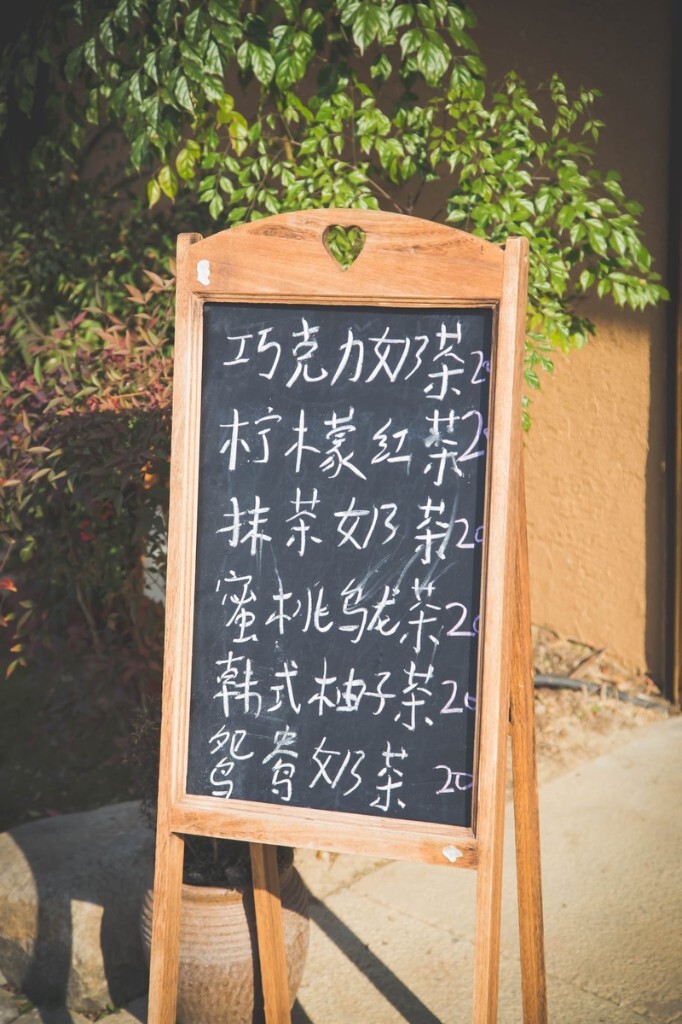 巧克力奶茶 20
柠檬红茶 20
抹茶奶茶 20
蜜桃乌龙茶 20
韩式柚子茶 20
鸳鸯奶茶 20